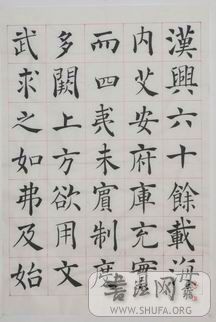 漢興六十餘載海
内艾安府庫充實
而四夷未賓制度
多闕上方欲用文
武求之如弗及始
書法网
WWW.SHUFA.COM